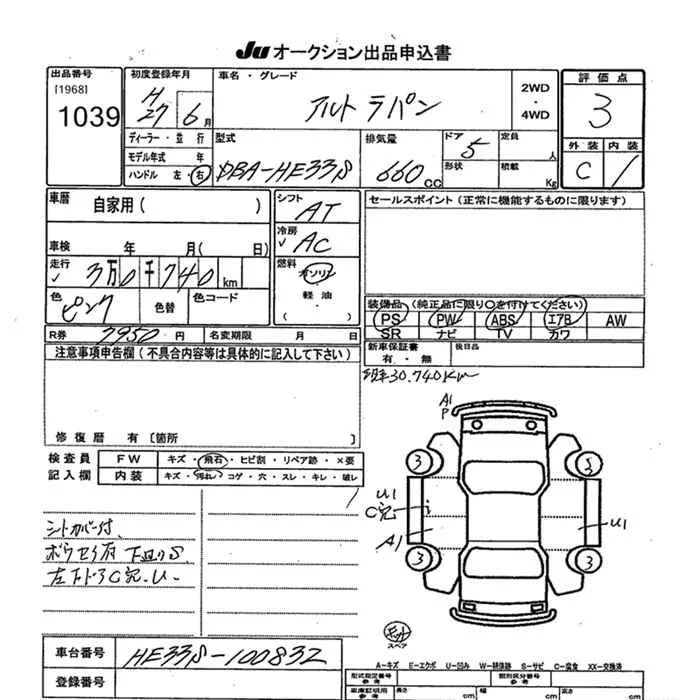 JU オークション出品申込書
出品番号 初度登録年月 車名・グレード 評価点
[1968] 1039 H27 6月 アルト ラパン 2WD・4WD 3
ディーラー・並行 型式 排気量 ドア 5 定員 人 外装 内装
モデル年式 年 DBA-HE33S 660cc 形状 積載 Kg C
ハンドル 左・右
車歴 自家用( ) シフト AT セールスポイント(正常に機能するものに限ります)
車検 年 月( 日) 冷房 AC
走行 3万0千740km 燃料 ガソリン
色 ピンク 色替 色コード 軽油 ( ) 装備品(純正品に限り○を付けてください)
PS PW ABS エアB AW
SR ナビ TV カワ
R券 7950円 名変期限 月 日 新車保証書 有・無 後日品
注意事項申告欄(不具合内容等は具体的に記入して下さい)
30.740Km
修復歴 有 〔箇所 〕
検査員 FW キズ・飛石・ヒビ割・リペア跡・×要
記入欄 内装 キズ・汚れ・コゲ・穴・スレ・キレ・破レ
A1
P
3 3
U1
A1 U1
3 3
シートカバー付
左 U
スペア
車台番号 HE33S-100832
登録番号
A-キズ E-エクボ U-凹み W-補修跡 S-サビ C-腐食 XX-交換済
型式指定番号 参考 類別区分番号 参考
長さ cm 幅 cm 高さ cm